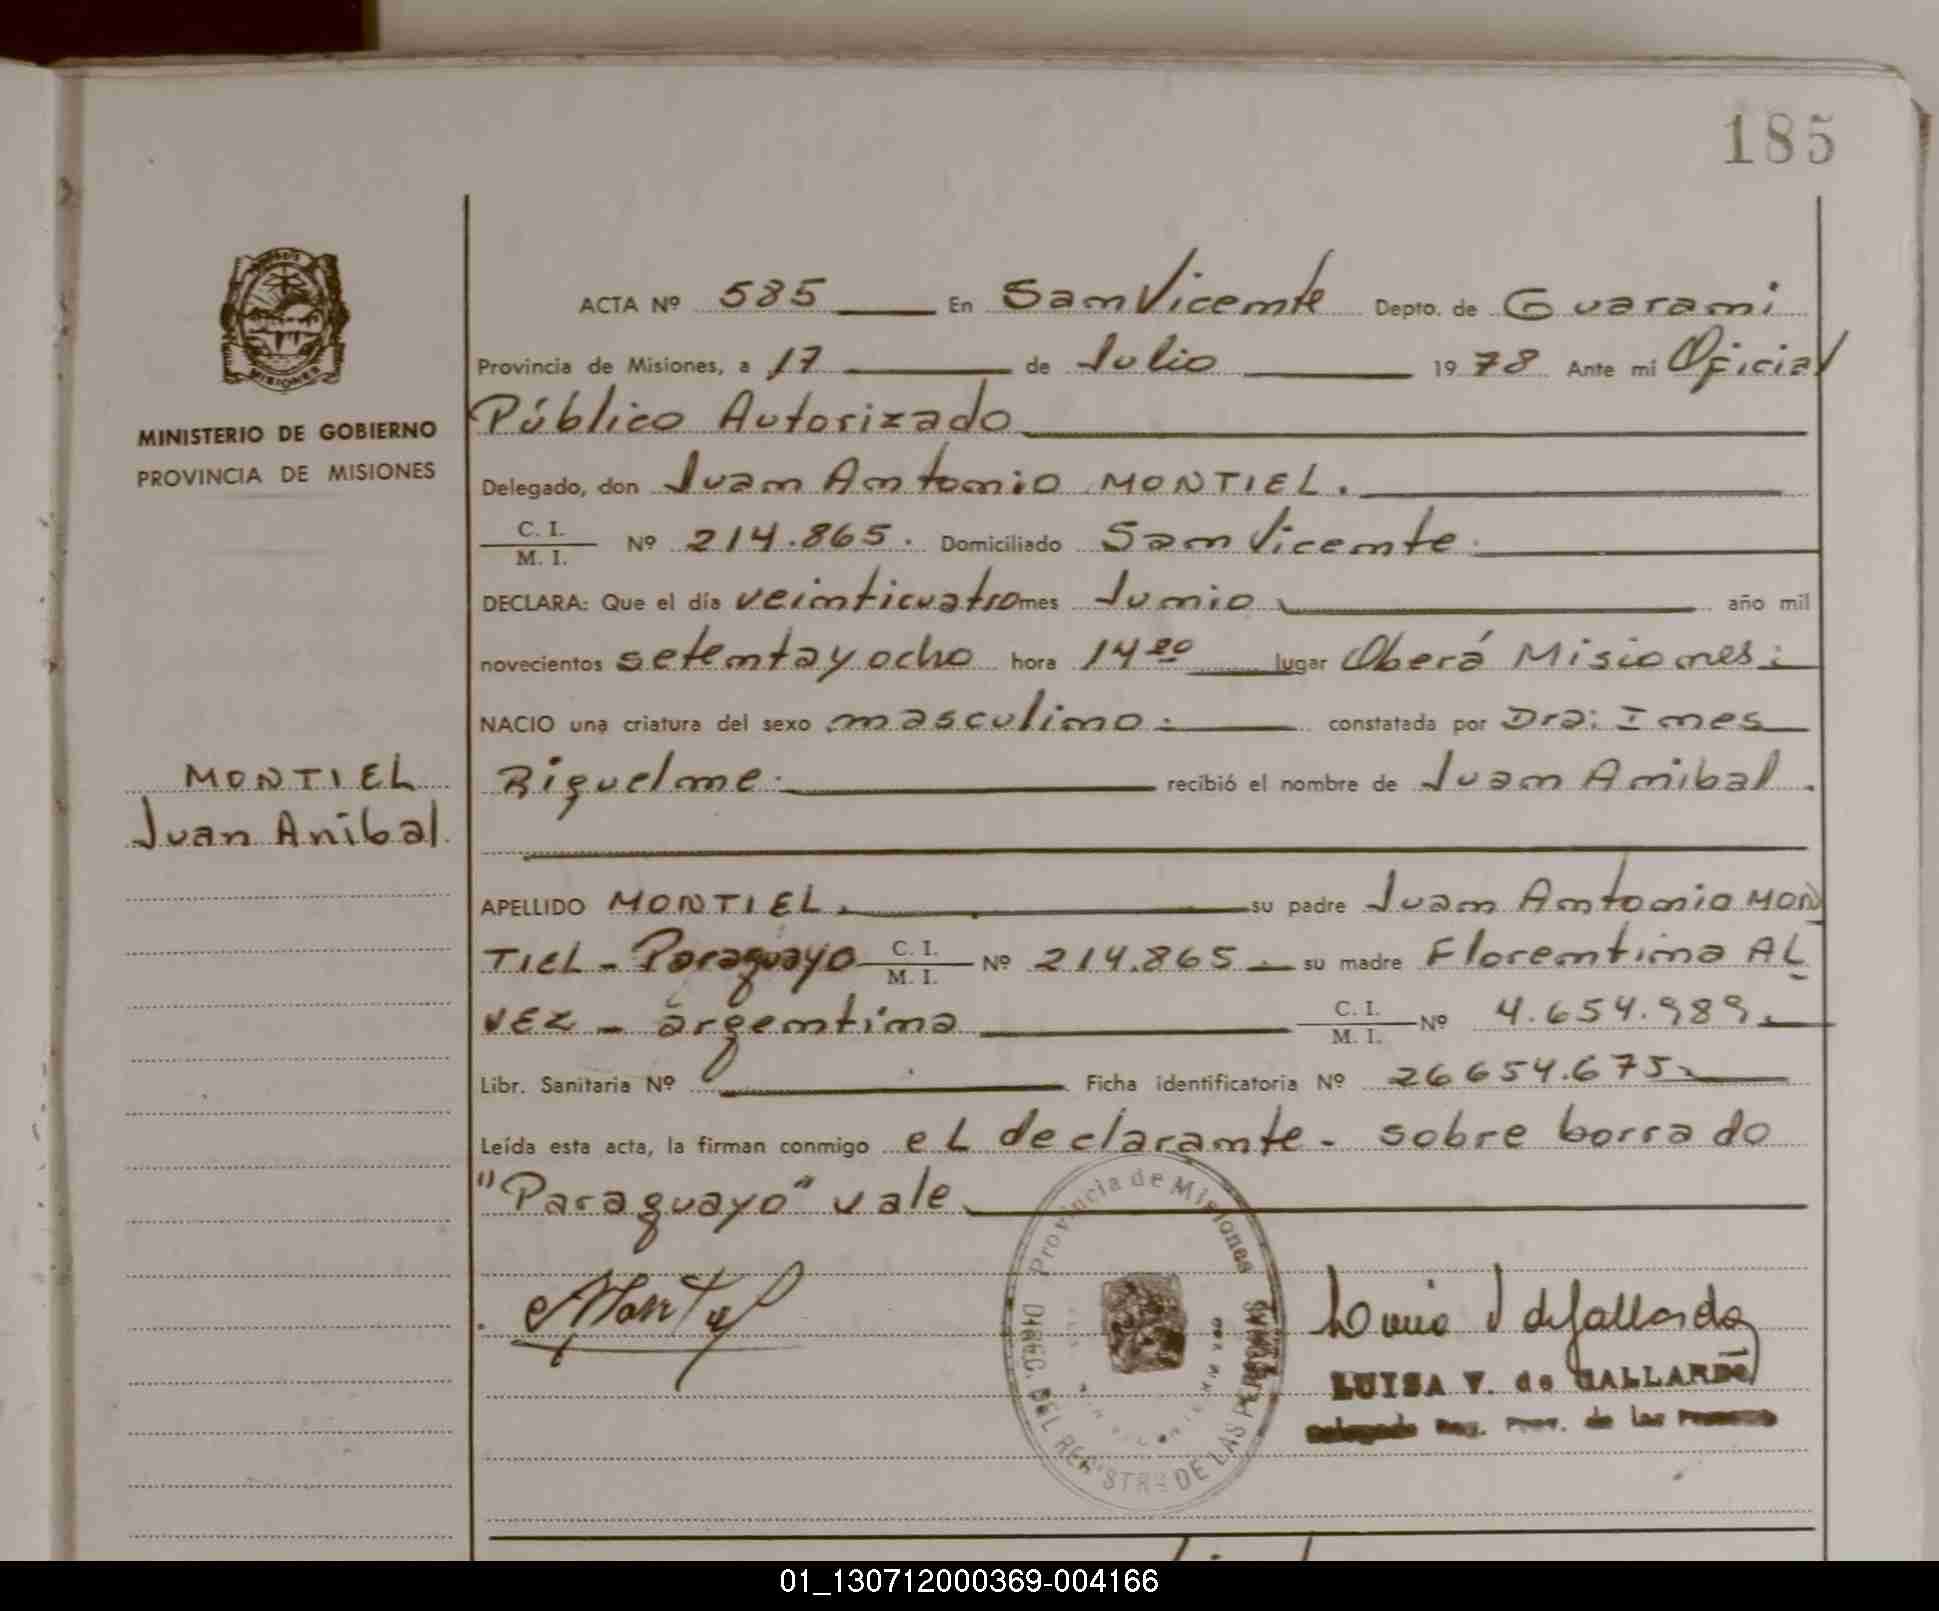 185
ACTA Nº 585 En San Vicente Depto. de Guarani
Provincia de Misiones, a 17 de Julio 1978 Ante mi Oficial
Público Autorizado
MINISTERIO DE GOBIERNO
PROVINCIA DE MISIONES
Delegado, don Juan Antonio MONTIEL.
C. I.
M. I. Nº 214.865. Domiciliado San Vicente.
DECLARA: Que el día veinticuatro mes Junio año mil
novecientos setenta y ocho hora 14 20 lugar Oberá Misiones.
NACIO una criatura del sexo masculino. constatada por Dra: Ines
MONTIEL
Juan Anibal.
Riquelme. recibió el nombre de Juan Anibal.
APELLIDO MONTIEL. su padre Juan Antonio MON
TIEL - Paraguayo C. I.
M. I. Nº 214.865 su madre Florentina AL
VEZ - argentina C. I.
M. I. Nº 4.654.989.
Libr. Sanitaria Nº Ficha identificatoria Nº 26654.675
Leída esta acta, la firman conmigo el declarante - sobre borrado
"Paraguayo" vale
Provincia de Misiones
DIREC. DEL REGISTRO DE LAS PERSONAS
LUISA V. de GALLARDO
Delegada Reg. Prov. de las Personas
MISIONES
01_130712000369-004166